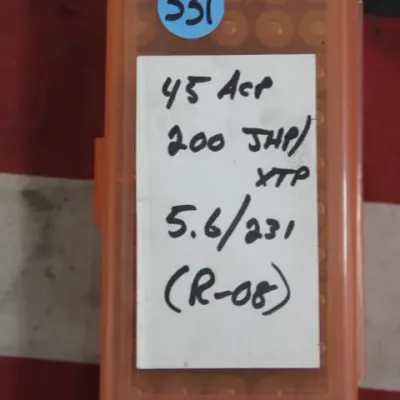 331
45 ACP
200 JHP/
XTP
5.6/231
(R-08)